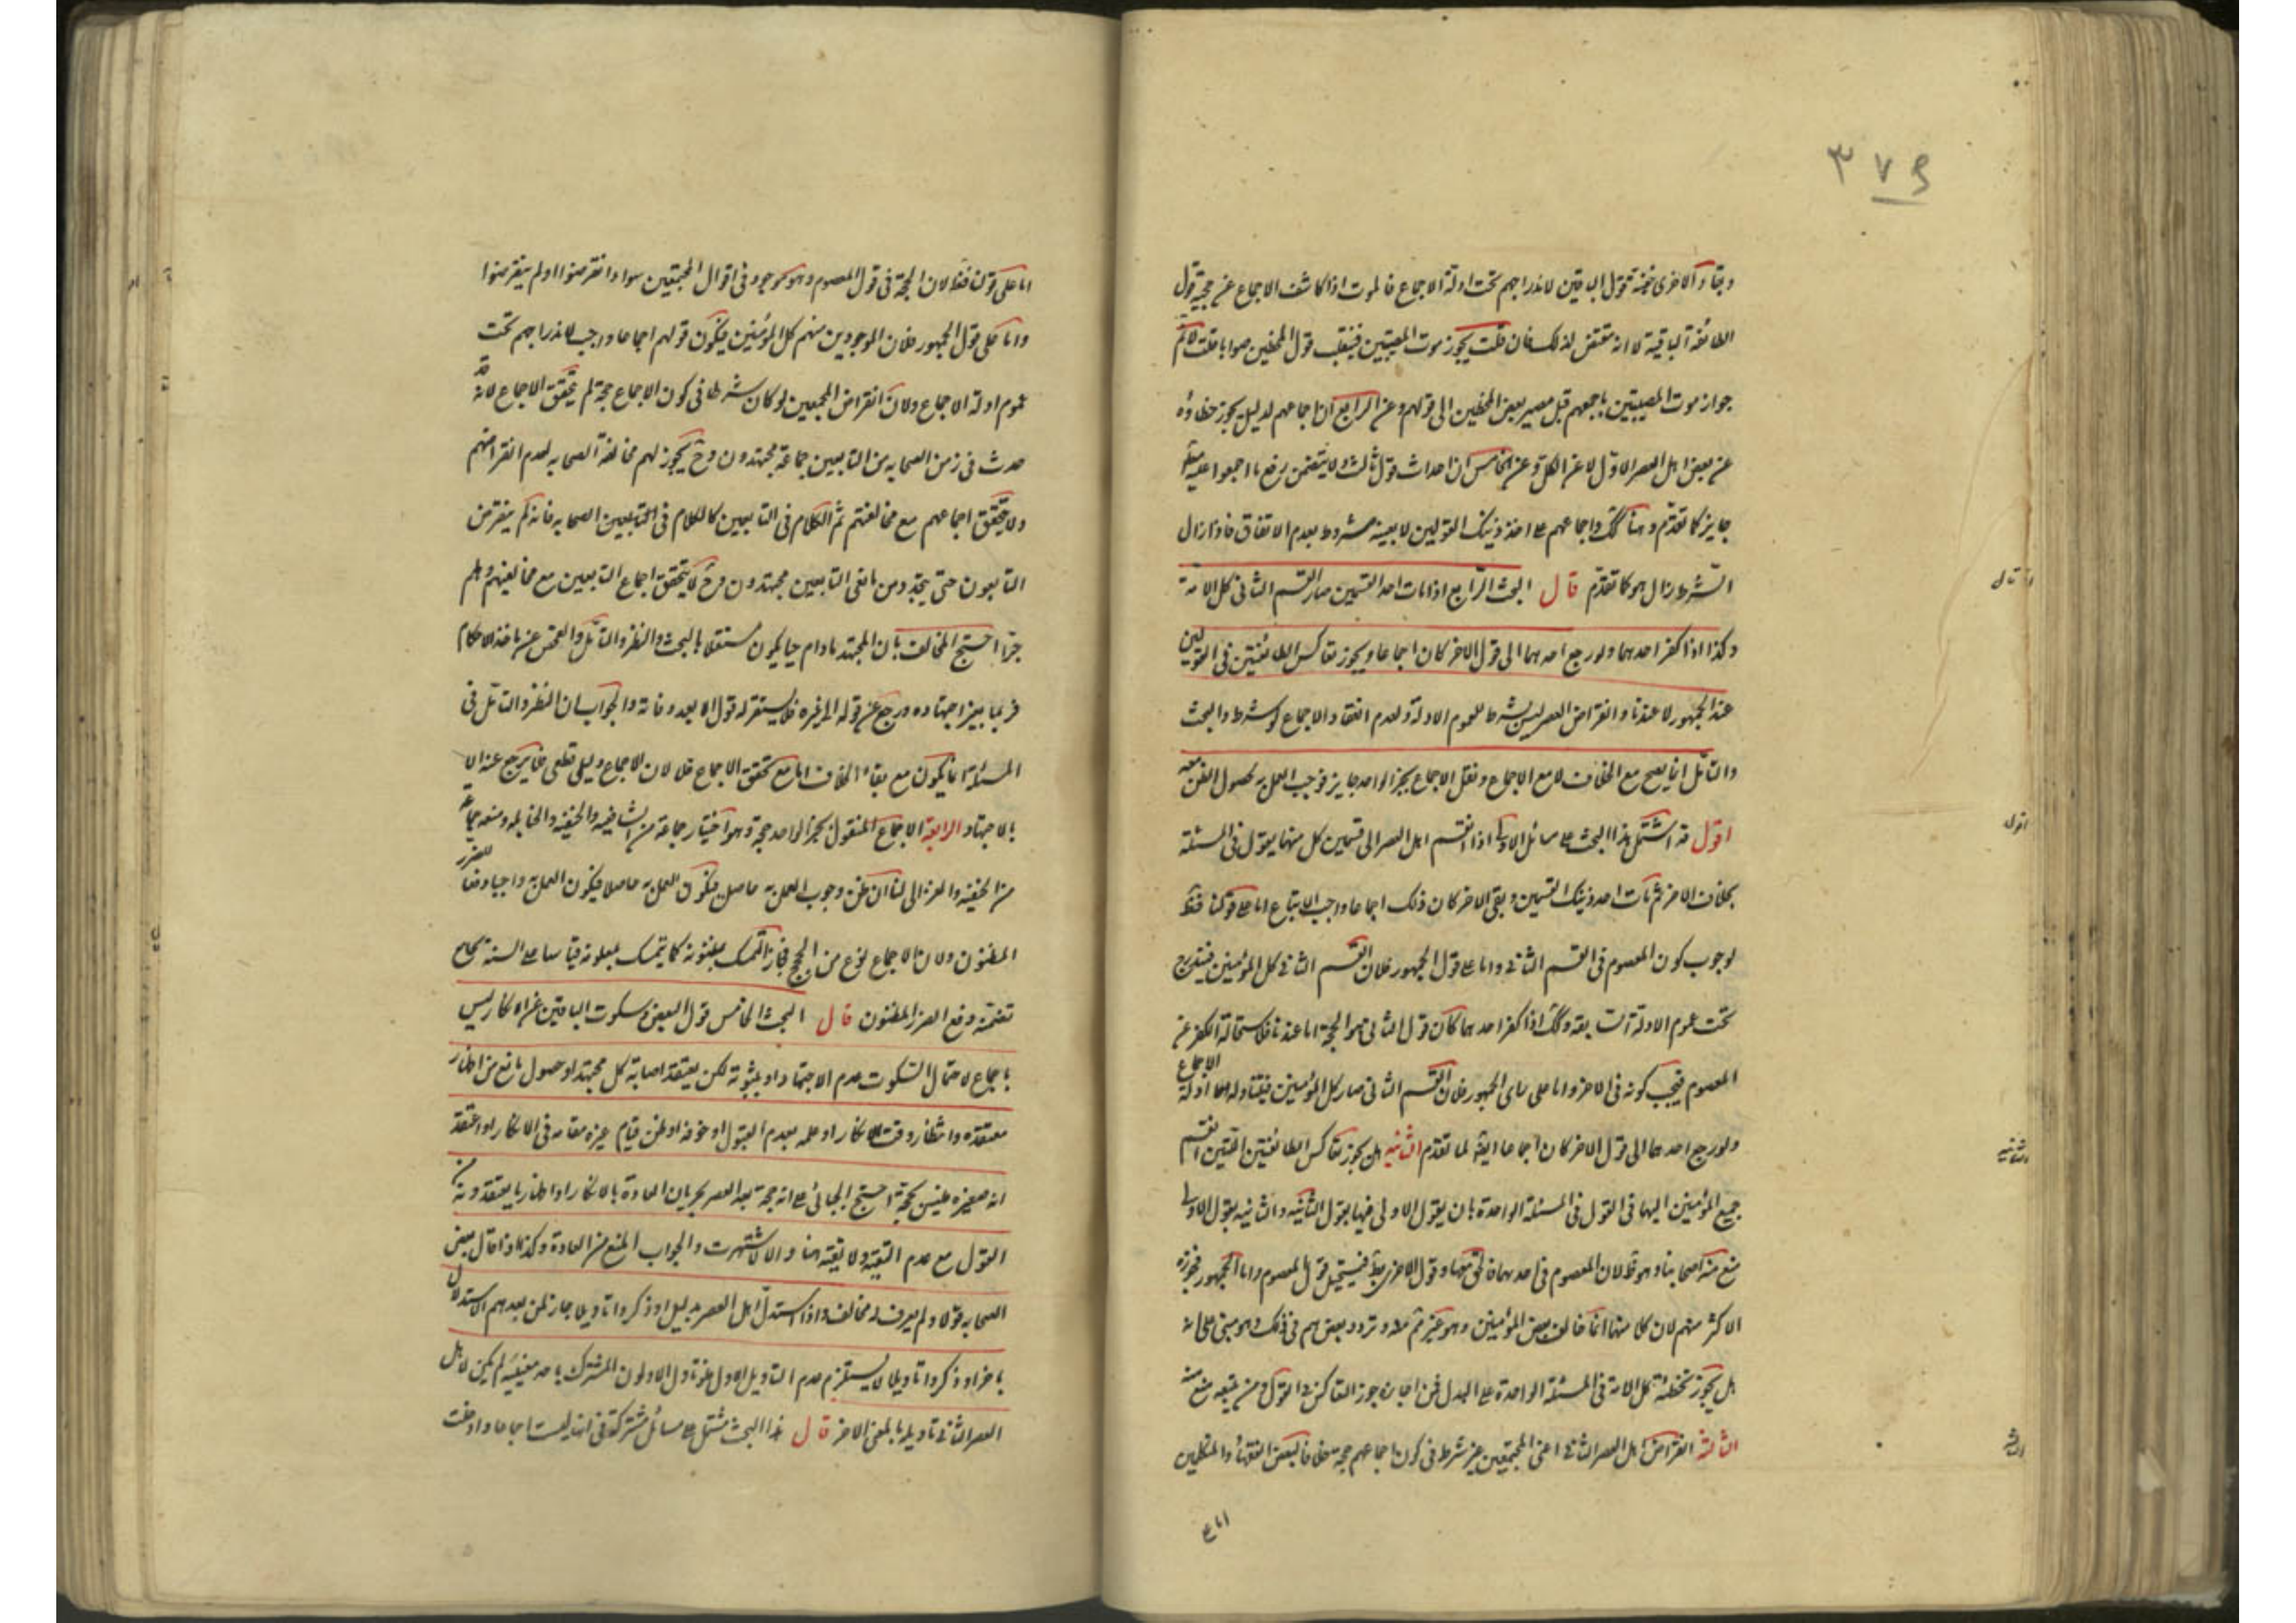 ٣٧٩
وبقاء الاخرى خفية تحول الباقين لاندراجهم تحت ادلة الاجماع فالموت اذا كاشف الاجماع عن حجية قول
الطائفة الباقية لا انه مقتض لذلك فان قلت يجوز موت المصيبين فينقلب قول المخطين صوابا قلت لا نم
جواز موت المصيبين باجمعهم قبل مصير بعض المخطين الى قولهم وعن الرابع ان اجماعهم لدليل يجوز خفاؤه
عن بعض اهل العصر الاول لا عن الكل وعن الخامس ان احداث قول ثالث ولا يتضمن رفع ما اجمعوا عليه
جايز كما تقدم وهنا كك واجماعهم على اخذ ذينك القولين لا بعينه مشروط بعدم الاتفاق فاذا زال
الشرط زال هو كما تقدم قال البحث الرابع اذا مات احد القسمين صار القسم الثاني كل الامة
وكذا اذا كفر احدهما ولو رجع احدهما الى قول الاخر كان اجماعا ويجوز تعاكس الطائفتين في القولين
عند الجمهور لا عندنا وانقراض العصر ليس بشرط لعموم الادلة ولعدم انعقاد الاجماع لو شرط والبحث
والتأمل انما يصح مع الخلاف لا مع الاجماع ونقل الاجماع بخبر الواحد جايز فوجب العمل به لحصول الظن معه
اقول قد اشتمل هذا البحث على مسائل الاولى اذا انقسم اهل العصر الى قسمين كل منهما يقول في المسئلة
بخلاف الاخر ثم مات احد ذينك القسمين وبقى الاخر كان ذلك اجماعا واجب الاتباع اما على قولنا فظ
لوجوب كون المعصوم في القسم الثاني واما على قول الجمهور فلان القسم الثاني كل المؤمنين فيندرج
تحت عموم الادلة السابقة وكك اذا كفر احدهما كان قول الثاني هو الحجة اما عندنا فلاستحالة الكفر عن
المعصوم فيجب كونه في الاخر واما على رأى الجمهور فلان القسم الثاني صار كل المؤمنين فيتناوله ادلة الاجماع
ولو رجع احدهما الى قول الاخر كان اجماعا ايضا لما تقدم الثانية هل يجوز تعاكس الطائفتين اللتين انقسم
جميع المؤمنين اليهما في القول في المسئلة الواحدة بان يقول الاولى فيها بقول الثانية والثانية بقول الاولى
منع منه اصحابنا وهو ظ لان المعصوم في احدهما فالحق معها وقول الاخرى بط فيستحيل قول المعصوم واما الجمهور فجوزه
الاكثر منهم لان كلا منها انما خالف بعض المؤمنين وهو غير وتردد بعضهم في ذلك وهو مبنى على انه
هل يجوز تخطئة كل الامة في المسئلة الواحدة على البدل فمن اجازه جوز التعاكس في القول ومن منعه منع منه
الثالثة انقراض اهل العصر الثاني اعنى المجمعين غير شرط في كون اجماعهم حجة خلافا لبعض الفقهاء والمتكلمين
اما على
قال
اقول
الثانية
الثالثة
اما على قولنا فظ لان الحجة في قول المعصوم وهو موجود في اقوال المجمعين سواء انقرضوا او لم ينقرضوا
واما على قول الجمهور فلان الموجودين منهم كل المؤمنين فيكون قولهم اجماعا واجب لاندراجهم تحت
عموم ادلة الاجماع ولان انقراض المجمعين لو كان شرطا في كون الاجماع حجة لم يتحقق الاجماع لانه قد
حدث في زمن الصحابه من التابعين جماعة مجتهدون وح يجوز لهم مخالفة الصحابه لعدم انقراضهم
ولا يتحقق اجماعهم مع مخالفتهم ثم الكلام في التابعين كالكلام في الصحابه فانه لم ينقرض
التابعون حتى يتجدد من تابعى التابعين مجتهدون وح لا يتحقق اجماع التابعين مع مخالفتهم وهلم
جرا احتج المخالف بان المجتهد مادام حيا يكون مستقلا بالبحث والنظر والتأمل والفحص عن ماخذ الاحكام
فربما يغير اجتهاده ورجع عن قوله الى غيره فلا يستقر له قول الا بعد وفاته والجواب ان النظر والتأمل في
المسئلة انما يكون مع بقاء الخلاف اما مع تحقق الاجماع فلا لان الاجماع دليل قطعى فلا يرجع عنه الا
بالاجتهاد الرابعة الاجماع المنقول بخبر الواحد حجة وهو اختيار جماعة من الشافعيه والحنفيه والحنابله ومنعه جماعة
من الحنفيه والغزالى لنا ان ظن وجوب العمل به حاصل فيكون العمل به حاصلا فيكون العمل به واجبا دفعا للضرر
المظنون ولان الاجماع نوع من الحجج فجاز التمسك بمظنونه كما يتمسك بمعلومه قياسا على السنة بجامع
تضمنه دفع الضرر المظنون قال البحث الخامس قول البعض وسكوت الباقين عن الانكار ليس
باجماع لاحتمال السكوت عدم الاجتهاد او ثبوته لكن يعتقد اصابة كل مجتهد او حصول مانع من اظهار
معتقده وانتظار وقت الانكار او علمه بعدم القبول او خوفه او ظن قيام غيره مقامه في الانكار او اعتقد
انه صغيره فليس بحجة احتج الجبائى على انه حجة بعد العصر بجريان العادة بالانكار او اظهار ما يعتقدونه
القول مع عدم التقية ولا تقية هنا والا لاشتهرت والجواب المنع من العادة وكذا اذا قال بعض
الصحابه قولا ولم يعرف له مخالف واذا استدل اهل العصر بدليل او ذكروا تاويلا جاز لمن بعدهم الاستدلال
باخر او ذكروا تاويلا لا يستلزم عدم التاويل الاول فلو تاول الاولون المشترك باحد معنييه لم يكن لاهل
العصر الثاني تاويله بالمعنى الاخر قال هذا البحث مشتمل على مسائل مشتركة في انها ليست اجماعا وادخلت